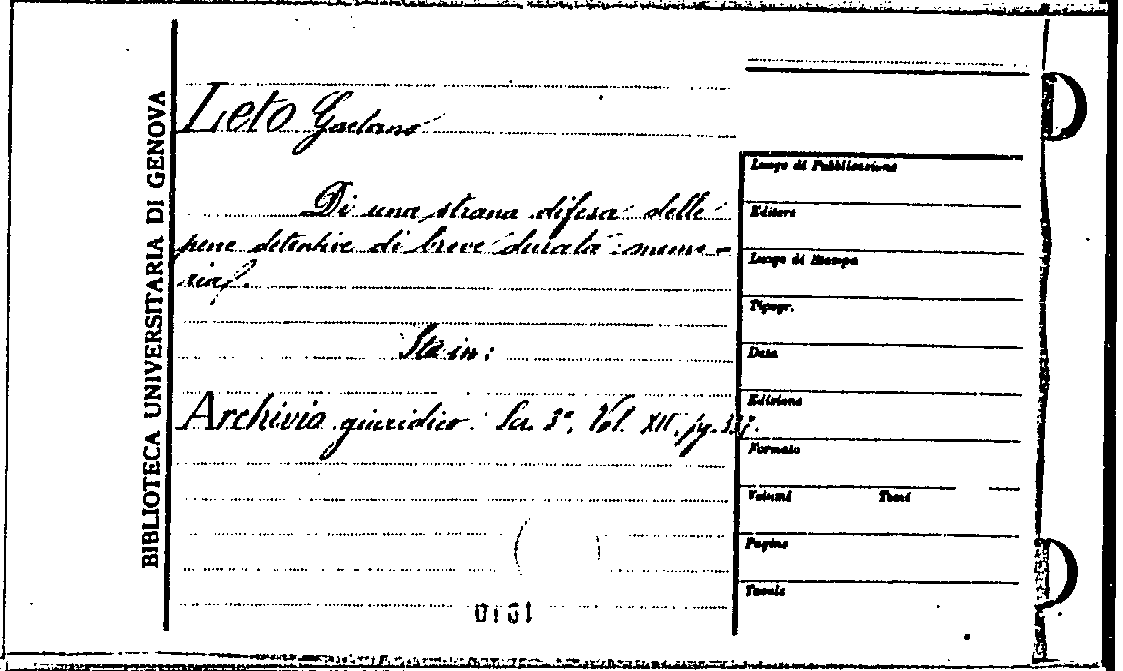 BIBLIOTECA UNIVERSITARIA DI GENOVA
Leto Gaetano
Di una strana difesa delle
pene detentive di breve durata:
Sta in:
Archivio giuridico. Ser. 3ª, Vol. XII, pg.
Luogo di Pubblicazione
Editore
Luogo di Stampa
Tipogr.
Data
Edizione
Formato
Volumi Tomi
Pagine
Tavole